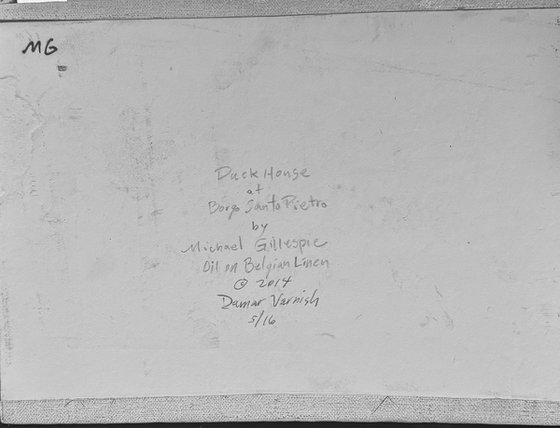 MG
Duck House
at
Borgo Santo Pietro
by
Michael Gillespie
Oil on Belgian Linen
© 2014
Damar Varnish
5/16